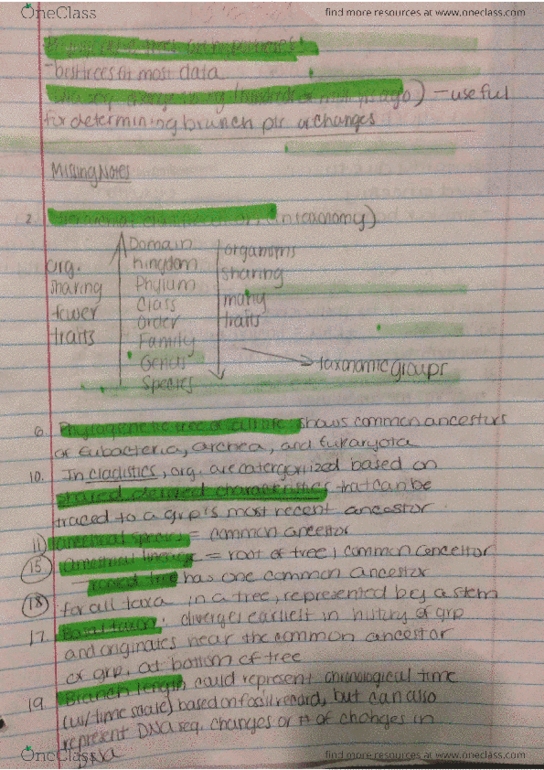 OneClass
find more resources at www.oneclass.com
-best trees for most data
ago) - useful
for determining branch pts or changes
Missing Notes
2. (in taxonomy)
Domain
Kingdom
Phylum
Class
Order
Family
Genus
Species
org.
sharing
fewer
traits
organisms
sharing
many
traits
taxonomic groups
6. Phylogenetic tree of all life: shows common ancestors
of Eubacteria, archea, and Eukaryota
10. In cladistics, org. are catergorized based on
shared derived characteristics that can be
traced to a grp's most recent ancestor
11) ancestral species = common ancestor
15 ancestral lineage = root of tree, common ancestor
rooted tree has one common ancestor
18 for all taxa in a tree, represented by a stem
17. Basal taxon: diverges earliest in history of grp
and originates near the common ancestor
of grp. at bottom of tree
19. Branch length could represent chronological time
(w/ time scale) based on fossil record, but can also
represent DNA seq. changes or # of changes in
DNA
OneClass
find more resources at www.oneclass.com